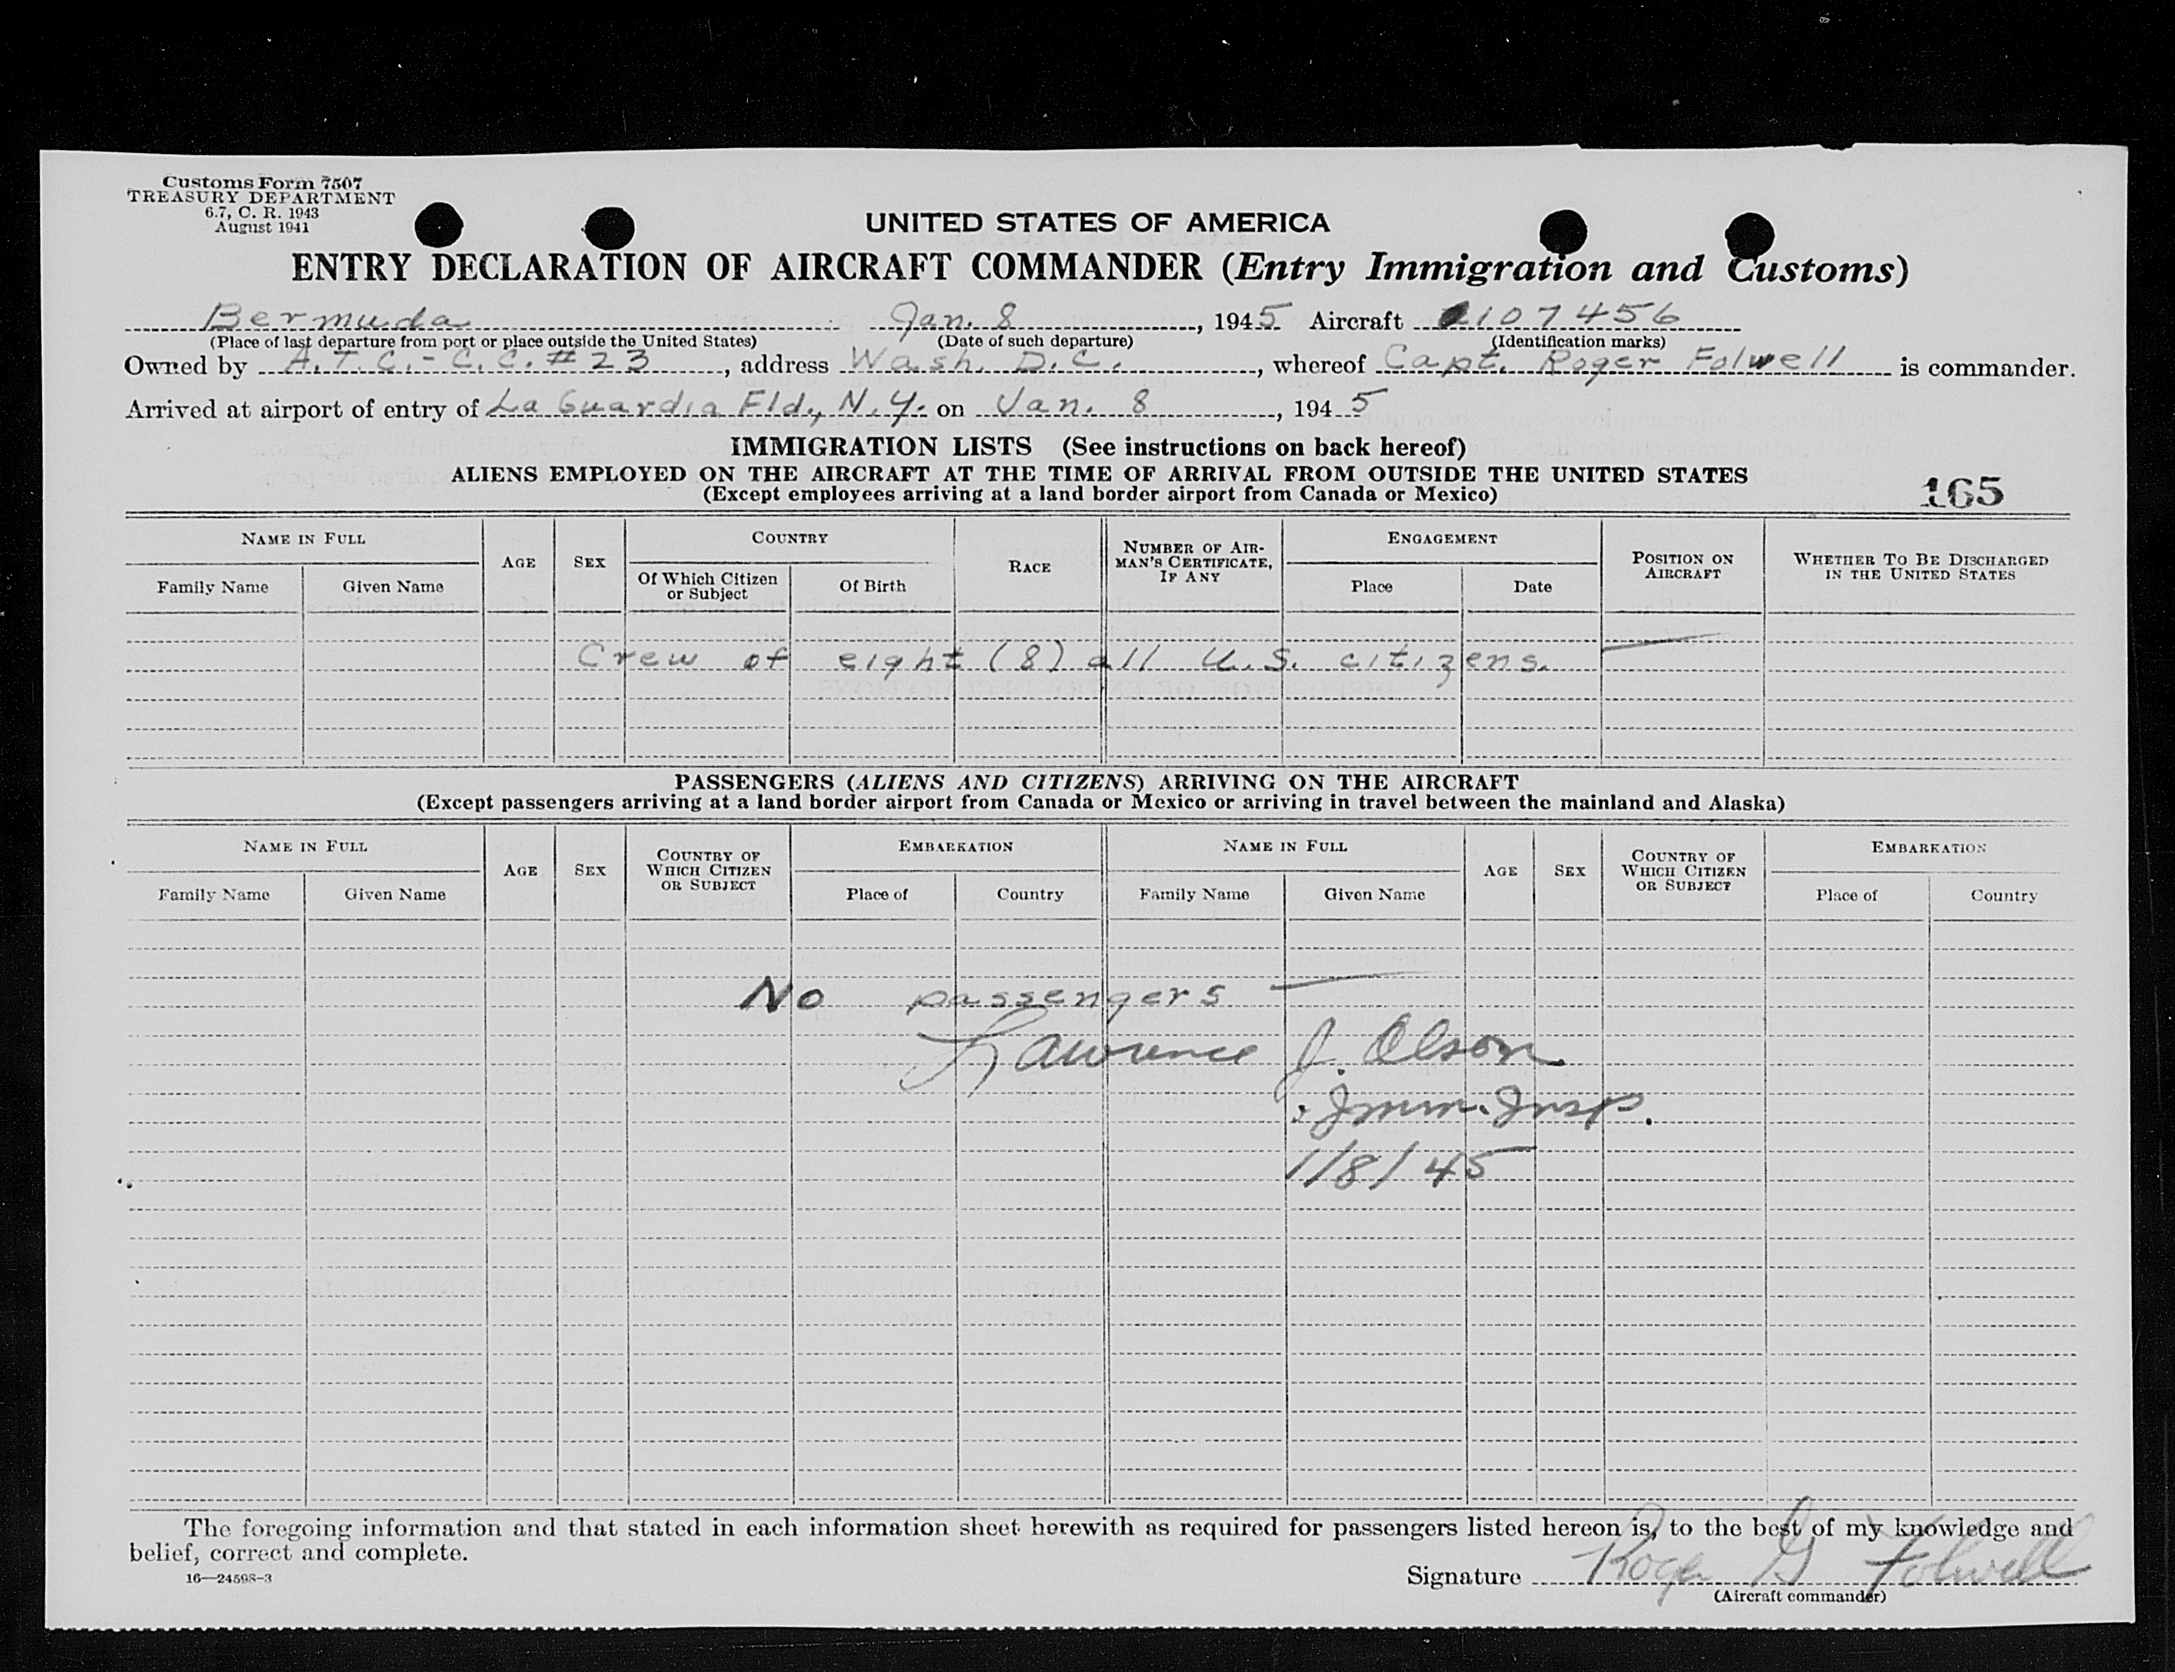 Customs Form 7507
TREASURY DEPARTMENT
6.7, C. R. 1943
August 1941
UNITED STATES OF AMERICA
ENTRY DECLARATION OF AIRCRAFT COMMANDER (Entry Immigration and Customs)
Bermuda Jan. 8, 1945 Aircraft 2107456
(Place of last departure from port or place outside the United States) (Date of such departure) (Identification marks)
Owned by A.T.C.-C.C.#23, address Wash. D.C., whereof Capt. Roger Folwell is commander.
Arrived at airport of entry of La Guardia Fld., N.Y. on Jan. 8, 1945
IMMIGRATION LISTS (See instructions on back hereof)
ALIENS EMPLOYED ON THE AIRCRAFT AT THE TIME OF ARRIVAL FROM OUTSIDE THE UNITED STATES
(Except employees arriving at a land border airport from Canada or Mexico)
165
NAME IN FULL
Family Name Given Name
AGE
SEX
COUNTRY
Of Which Citizen or Subject
Of Birth
RACE
NUMBER OF AIRMAN'S CERTIFICATE, IF ANY
ENGAGEMENT
Place Date
POSITION ON AIRCRAFT
WHETHER TO BE DISCHARGED IN THE UNITED STATES
Crew of eight (8) all U.S. citizens.
PASSENGERS (ALIENS AND CITIZENS) ARRIVING ON THE AIRCRAFT
(Except passengers arriving at a land border airport from Canada or Mexico or arriving in travel between the mainland and Alaska)
NAME IN FULL
Family Name Given Name
AGE
SEX
COUNTRY OF WHICH CITIZEN OR SUBJECT
EMBARKATION
Place of Country
NAME IN FULL
Family Name Given Name
AGE
SEX
COUNTRY OF WHICH CITIZEN OR SUBJECT
EMBARKATION
Place of Country
No passengers
Lawrence J. Olson
Imm. Insp.
1/8/45
The foregoing information and that stated in each information sheet herewith as required for passengers listed hereon is, to the best of my knowledge and
belief, correct and complete.
16—24598-3
Signature Roger G Folwell
(Aircraft commander)